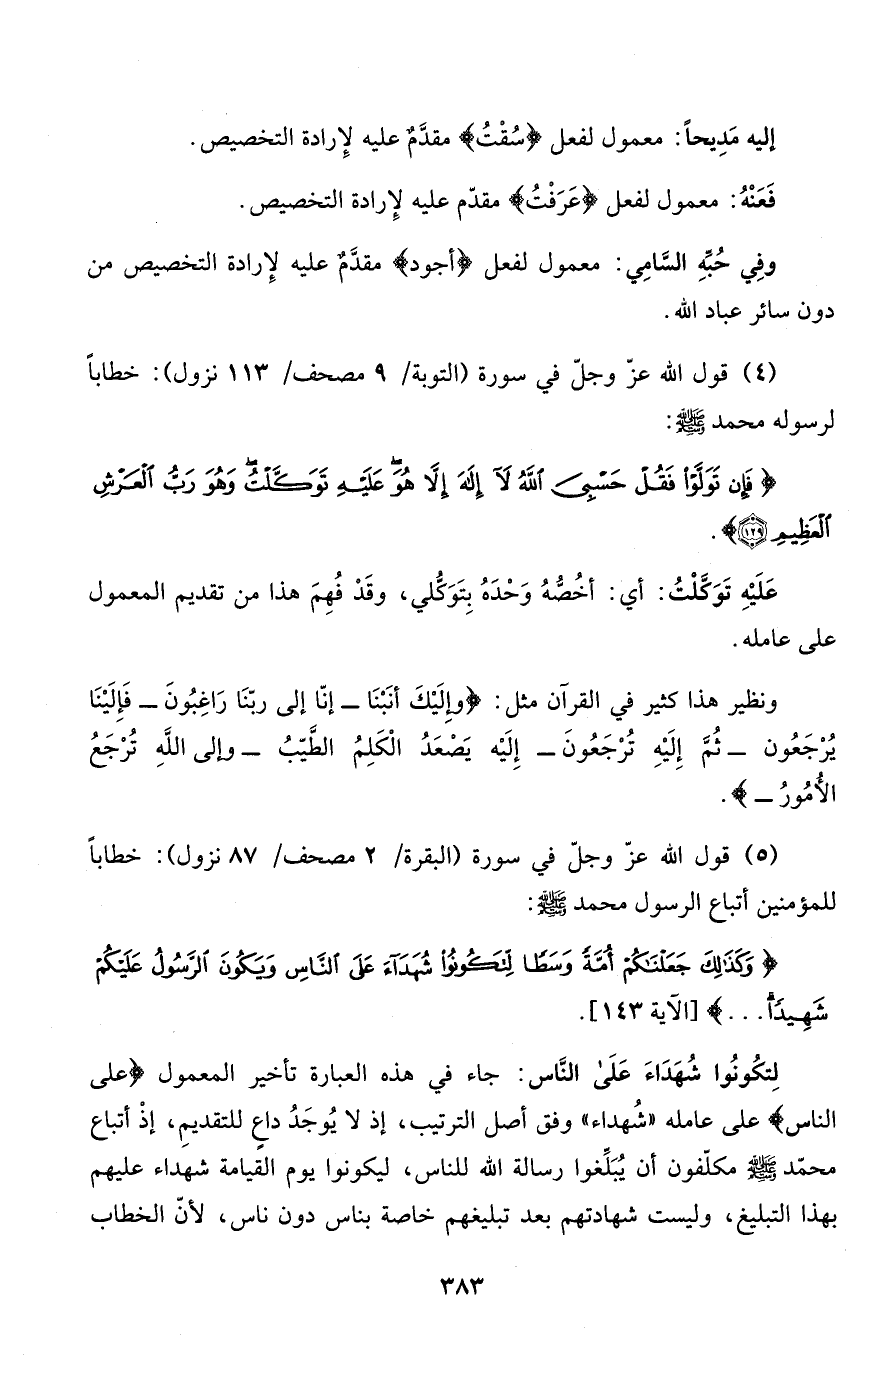 إليه مَدِيحاً: معمول لفعل ﴿سُقْتُ﴾ مقدَّمٌ عليه لإرادة التخصيص.
فَعَنْهُ: معمول لفعل ﴿عَرَفْتُ﴾ مقدّم عليه لإرادة التخصيص.
وفِي حُبِّهِ السَّامِي: معمول لفعل ﴿أجود﴾ مقدَّمٌ عليه لإرادة التخصيص من
دون سائر عباد الله.
(٤) قول الله عزّ وجلّ في سورة (التوبة/ ٩ مصحف/ ١١٣ نزول): خطاباً
لرسوله محمد ﷺ:
﴿ فَإِن تَوَلَّوۡاْ فَقُلۡ حَسۡبِيَ ٱللَّهُ لَآ إِلَٰهَ إِلَّا هُوَۖ عَلَيۡهِ تَوَكَّلۡتُۖ وَهُوَ رَبُّ ٱلۡعَرۡشِ
ٱلۡعَظِيمِ ١٢٩﴾.
عَلَيْهِ تَوَكَّلْتُ: أي: أخُصُّهُ وَحْدَهُ بِتَوَكُّلي، وقَدْ فُهِمَ هذا من تقديم المعمول
على عامله.
ونظير هذا كثير في القرآن مثل: ﴿وإِلَيْكَ أنَبْنَا ـ إنّا إلى ربّنَا رَاغِبُونَ ـ فَإِلَيْنَا
يُرْجَعُون ـ ثُمَّ إِلَيْهِ تُرْجَعُونَ ـ إِلَيْه يَصْعَدُ الْكَلِمُ الطَّيّبُ ـ وإلى اللَّهِ تُرْجَعُ
الأُمُورُ ـ ﴾.
(٥) قول الله عزّ وجلّ في سورة (البقرة/ ٢ مصحف/ ٨٧ نزول): خطاباً
للمؤمنين أتباع الرسول محمد ﷺ:
﴿ وَكَذَٰلِكَ جَعَلۡنَٰكُمۡ أُمَّةٗ وَسَطٗا لِّتَكُونُواْ شُهَدَآءَ عَلَى ٱلنَّاسِ وَيَكُونَ ٱلرَّسُولُ عَلَيۡكُمۡ
شَهِيدٗاۗ...﴾ [الآية ١٤٣].
لِتكُونُوا شُهَدَاءَ عَلَىٰ النَّاس: جاء في هذه العبارة تأخير المعمول ﴿على
الناس﴾ على عامله «شُهداء» وفق أصل الترتيب، إذ لا يُوجَدُ داعٍ للتقديمِ، إذْ أتباع
محمّد ﷺ مكلّفون أن يُبَلِّغوا رسالة الله للناس، ليكونوا يوم القيامة شهداء عليهم
بهذا التبليغ، وليست شهادتهم بعد تبليغهم خاصة بناس دون ناس، لأنّ الخطاب
٣٨٣